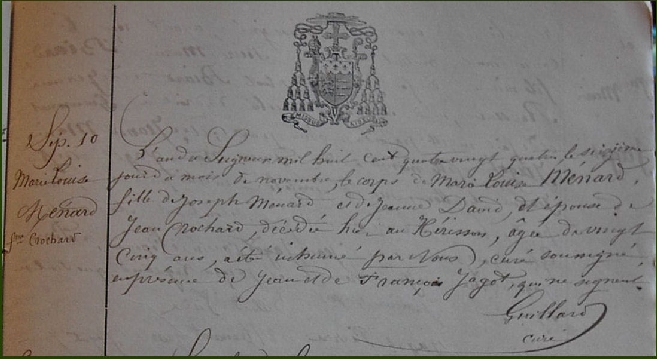 Sép. 10
Marie Louise
Ménard
fme Crochard
L'an du Seigneur mil huit cent quatre vingt quatre le seizième
jour du mois de novembre, le corps de Marie Louise Ménard,
fille de Joseph Ménard et de Jeanne David, et épouse de
Jean Crochard, décédée hier au Hérisson, âgée de vingt
cinq ans, a été inhumé par Nous, curé soussigné,
en présence de Jean et de François Jagot, qui ne signent
Guillard
curé